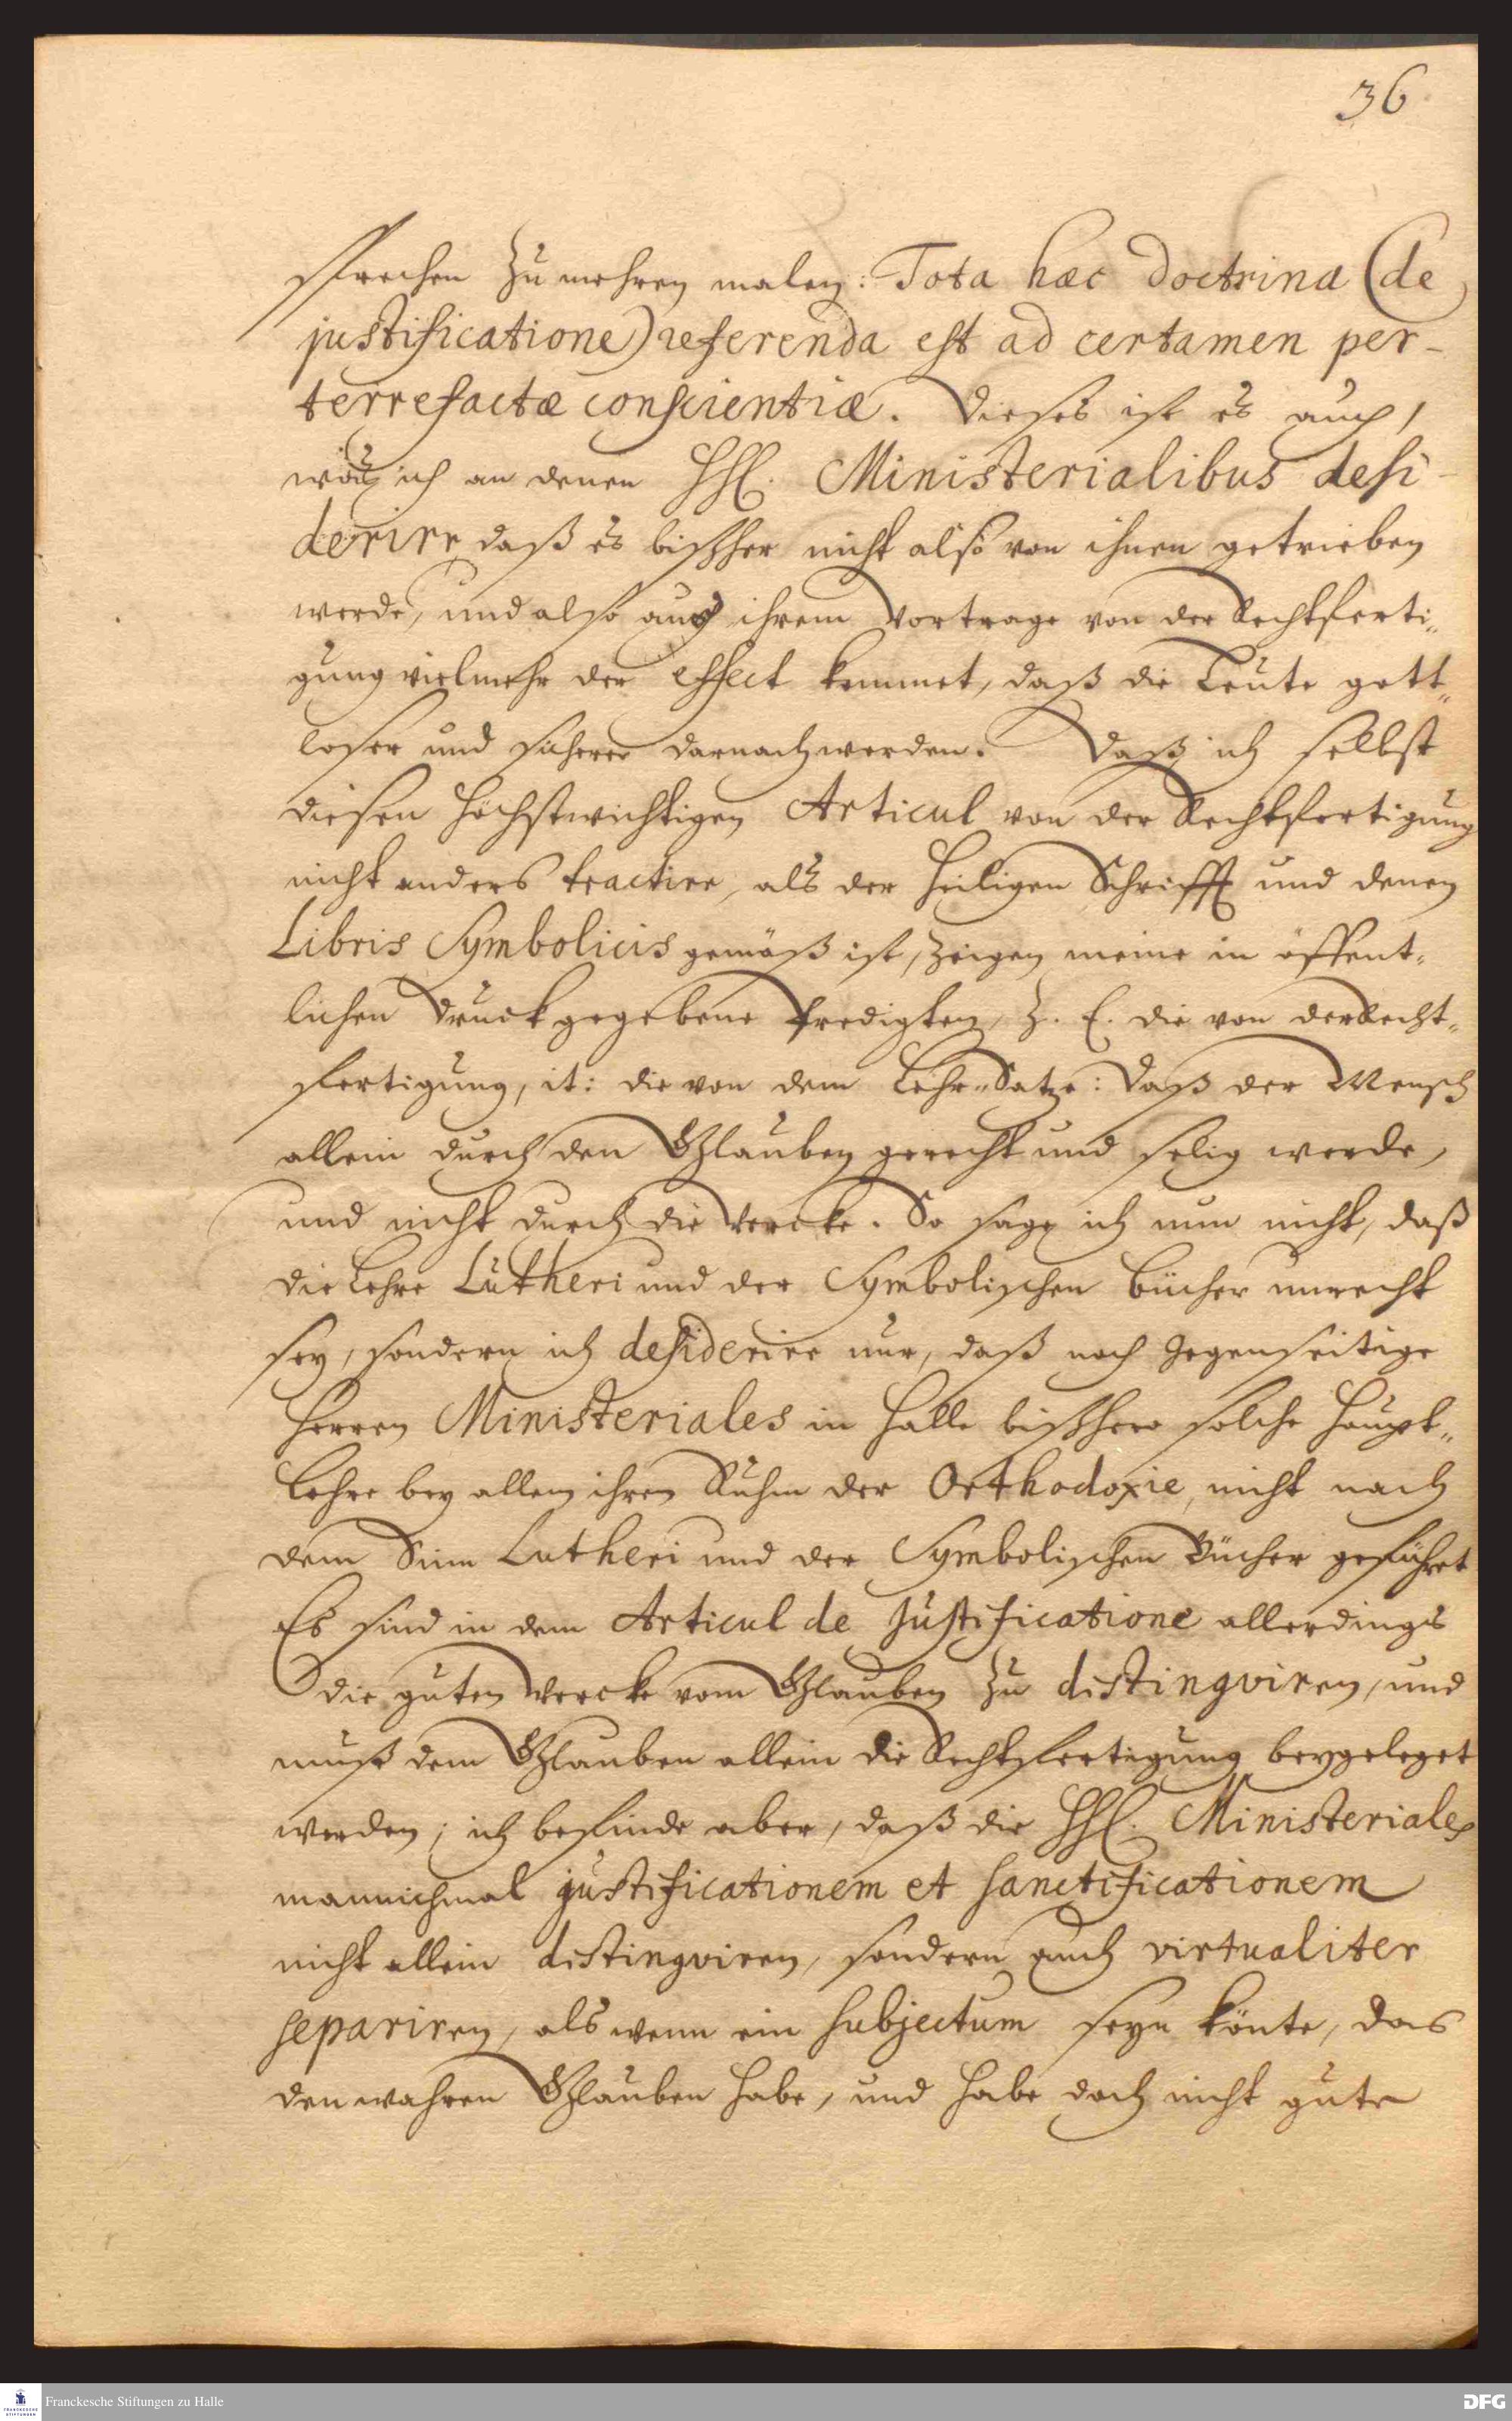 36
sprechen zu mehren malen: Tota haec doctrina (de
justificatione) referenda est ad certamen per-
terrefactae conscientiae. Dieses ist es auch,
was ich an denen HH. Ministerialibus desi-
derire, daß es bißher nicht also von ihnen getrieben
werde, und also aus ihrem Vortrage von der Rechtferti-
gung vielmehr der effect kommet, daß die Leute gott-
loser und sicherer darnach werden. Daß ich selbst
diesen höchstwichtigen Articul von der Rechtfertigung
nicht anders tractire, als der Heiligen Schrifft und denen
Libris Symbolicis gemäß ist, zeigen meine in öffent-
lichen Druck gegebene Predigten, z. E. die von der Recht-
fertigung, it: die von dem Lehr-Satze: Daß der Mensch
allein durch den Glauben gerecht und selig werde,
und nicht durch die Wercke. So sage ich nun nicht, daß
die Lehre Lutheri und der Symbolischen Bücher unrecht
sey, sondern ich desiderire nur, daß noch gegenseitige
Herren Ministeriales in Halle bißhero solche Haupt-
Lehre bey allem ihren Ruhm der Orthodoxie, nicht nach
dem Sinn Lutheri und der Symbolischen Bücher geführet
Es sind in dem Articul de Justificatione allerdings
die guten Wercke vom Glauben zu distingviren, und
muß dem Glauben allein die Rechtfertigung beygeleget
werden; ich befinde aber, daß die HH. Ministeriales
mannichmal justificationem et sanctificationem
nicht allein distingviren, sondern auch virtualiter
separiren, als wenn ein subjectum seyn könte, das
den wahren Glauben habe, und habe doch nicht gute
Franckesche Stiftungen zu Halle
FRANCKESCHE STIFTUNGEN
DFG